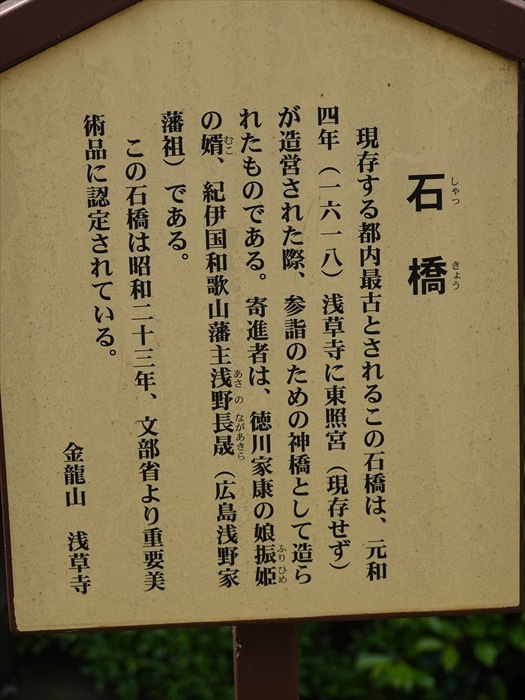 石橋
しゃっ きょう
現存する都内最古とされるこの石橋は、元和
四年（一六一八）浅草寺に東照宮（現存せず）
が造営された際、参詣のための神橋として造ら
れたものである。寄進者は、徳川家康の娘振姫
ふりひめ
の婿、紀伊国和歌山藩主浅野長晟（広島浅野家
むこ あさの ながあきら
藩祖）である。
この石橋は昭和二十三年、文部省より重要美
術品に認定されている。
金龍山 浅草寺